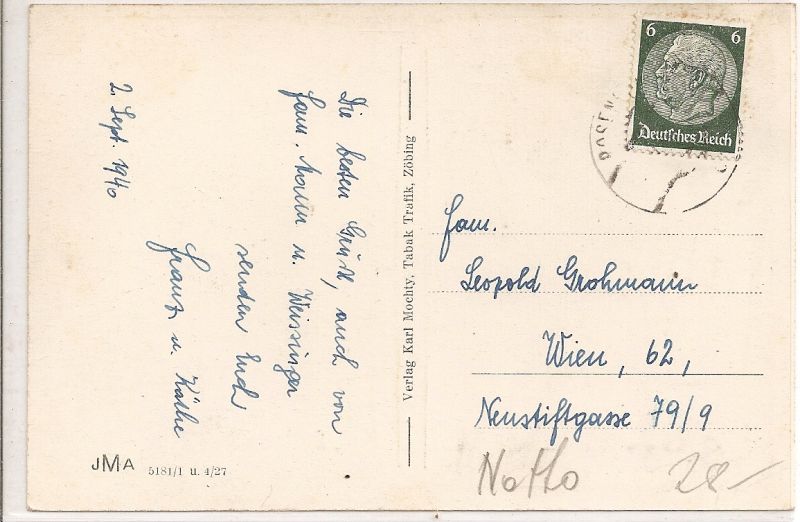 2. Sept. 1940
Die besten Grüße, auch von
Fam. Mann u. Weissinger
senden Euch
Franz u. Käthe
JMA 5181/1 u. 4/27
Verlag Karl Mochty, Tabak Trafik, Zöbing
6 6
Deutsches Reich
Fam.
Leopold Grohmann
Wien, 62,
Neustiftgasse 79/9
28-